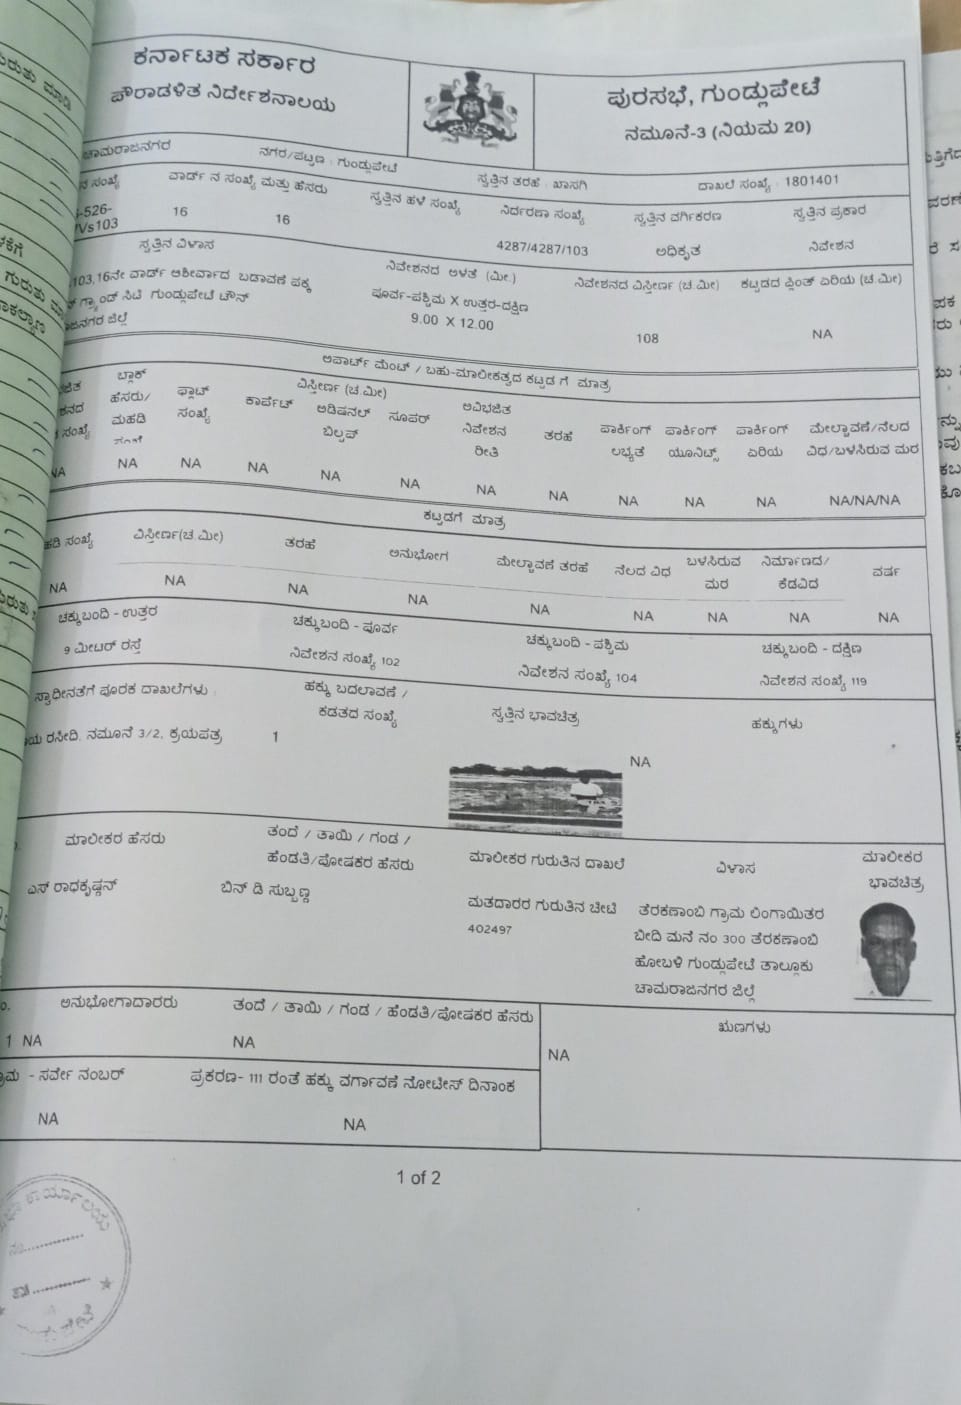 ಕರ್ನಾಟಕ ಸರ್ಕಾರ
ಪೌರಾಡಳಿತ ನಿರ್ದೇಶನಾಲಯ
ಪುರಸಭೆ, ಗುಂಡ್ಲುಪೇಟೆ
ನಮೂನೆ-3 (ನಿಯಮ 20)
ಚಾಮರಾಜನಗರ ನಗರ/ಪಟ್ಟಣ : ಗುಂಡ್ಲುಪೇಟೆ ಸ್ವತ್ತಿನ ತರಹ : ಖಾಸಗಿ ದಾಖಲೆ ಸಂಖ್ಯೆ : 1801401
ನ ಸಂಖ್ಯೆ ವಾರ್ಡ್ ನ ಸಂಖ್ಯೆ ಮತ್ತು ಹೆಸರು ಸ್ವತ್ತಿನ ಹಳೆ ಸಂಖ್ಯೆ ನಿರ್ದರಣಾ ಸಂಖ್ಯೆ ಸ್ವತ್ತಿನ ವರ್ಗಿಕರಣ ಸ್ವತ್ತಿನ ಪ್ರಕಾರ
-526-
/Vs103 16 16 4287/4287/103 ಅಧಿಕೃತ ನಿವೇಶನ
ಸ್ವತ್ತಿನ ವಿಳಾಸ ನಿವೇಶನದ ಅಳತೆ (ಮೀ.) ನಿವೇಶನದ ವಿಸ್ತೀರ್ಣ (ಚ.ಮೀ) ಕಟ್ಟಡದ ಪ್ಲಿಂತ್ ಏರಿಯ (ಚ.ಮೀ)
103,16ನೇ ವಾರ್ಡ್ ಆಶೀರ್ವಾದ ಬಡಾವಣೆ ಪಕ್ಕ ಪೂರ್ವ-ಪಶ್ಚಿಮ X ಉತ್ತರ-ದಕ್ಷಿಣ
ಗ್ರ್ಯಾಂಡ್ ಸಿಟಿ ಗುಂಡ್ಲುಪೇಟೆ ಟೌನ್ 9.00 X 12.00 108 NA
ಜನಗರ ಜಿಲ್ಲೆ
ಅಪಾರ್ಟ್ ಮೆಂಟ್ / ಬಹು-ಮಾಲೀಕತ್ವದ ಕಟ್ಟಡ ಗೆ ಮಾತ್ರ
ಬ್ಲಾಕ್ ವಿಸ್ತೀರ್ಣ (ಚ.ಮೀ)
ಹೆಸರು/ ಫ್ಲಾಟ್ ಕಾರ್ಪೆಟ್ ಅಡಿಷನಲ್ ಸೂಪರ್ ಅವಿಭಜಿತ
ಮಹಡಿ ಸಂಖ್ಯೆ ಬಿಲ್ಟಪ್ ನಿವೇಶನ ತರಹೆ ಪಾರ್ಕಿಂಗ್ ಪಾರ್ಕಿಂಗ್ ಪಾರ್ಕಿಂಗ್ ಮೇಲ್ಚಾವಣೆ/ನೆಲದ
ಸಂಖ್ಯೆ ರೀತಿ ಲಭ್ಯತೆ ಯೂನಿಟ್ಸ್ ಏರಿಯ ವಿಧ/ಬಳಸಿರುವ ಮರ
NA NA NA NA NA NA NA NA NA NA NA NA/NA/NA
ಕಟ್ಟಡಗೆ ಮಾತ್ರ
ಹಡಿ ಸಂಖ್ಯೆ ವಿಸ್ತೀರ್ಣ(ಚ.ಮೀ) ತರಹೆ ಅನುಭೋಗ ಮೇಲ್ಚಾವಣೆ ತರಹೆ ನೆಲದ ವಿಧ ಬಳಸಿರುವ ಮರ ನಿರ್ಮಾಣದ/ ಕೆಡವಿದ ವರ್ಷ
NA NA NA NA NA NA NA NA NA
ಚಕ್ಕುಬಂದಿ - ಉತ್ತರ ಚಕ್ಕುಬಂದಿ - ಪೂರ್ವ ಚಕ್ಕುಬಂದಿ - ಪಶ್ಚಿಮ ಚಕ್ಕುಬಂದಿ - ದಕ್ಷಿಣ
9 ಮೀಟರ್ ರಸ್ತೆ ನಿವೇಶನ ಸಂಖ್ಯೆ 102 ನಿವೇಶನ ಸಂಖ್ಯೆ 104 ನಿವೇಶನ ಸಂಖ್ಯೆ 119
ಸ್ವಾಧೀನತೆಗೆ ಪೂರಕ ದಾಖಲೆಗಳು : ಹಕ್ಕು ಬದಲಾವಣೆ / ಸ್ವತ್ತಿನ ಭಾವಚಿತ್ರ ಹಕ್ಕುಗಳು
ಕಡತದ ಸಂಖ್ಯೆ
ಯ ರಸೀದಿ, ನಮೂನೆ 3/2, ಕ್ರಯಪತ್ರ 1 NA
ಮಾಲೀಕರ ಹೆಸರು ತಂದೆ / ತಾಯಿ / ಗಂಡ / ಮಾಲೀಕರ ಗುರುತಿನ ದಾಖಲೆ ವಿಳಾಸ ಮಾಲೀಕರ
ಹೆಂಡತಿ/ಪೋಷಕರ ಹೆಸರು ಭಾವಚಿತ್ರ
ಎಸ್ ರಾಧಕೃಷ್ಣನ್ ಬಿನ್ ಡಿ ಸುಬ್ಬಣ್ಣ ಮತದಾರರ ಗುರುತಿನ ಚೀಟಿ ತೆರಕಣಾಂಬಿ ಗ್ರಾಮ ಲಿಂಗಾಯಿತರ
402497 ಬೀದಿ ಮನೆ ನಂ 300 ತೆರಕಣಾಂಬಿ
ಹೋಬಳಿ ಗುಂಡ್ಲುಪೇಟೆ ತಾಲ್ಲೂಕು
ಚಾಮರಾಜನಗರ ಜಿಲ್ಲೆ
ಅನುಭೋಗಾದಾರರು ತಂದೆ / ತಾಯಿ / ಗಂಡ / ಹೆಂಡತಿ/ಪೋಷಕರ ಹೆಸರು ಋಣಗಳು
1 NA NA NA
- ಸರ್ವೇ ನಂಬರ್ ಪ್ರಕರಣ- 111 ರಂತೆ ಹಕ್ಕು ವರ್ಗಾವಣೆ ನೋಟೀಸ್ ದಿನಾಂಕ
NA NA
1 of 2
ಕಾರ್ಯಾಲಯ